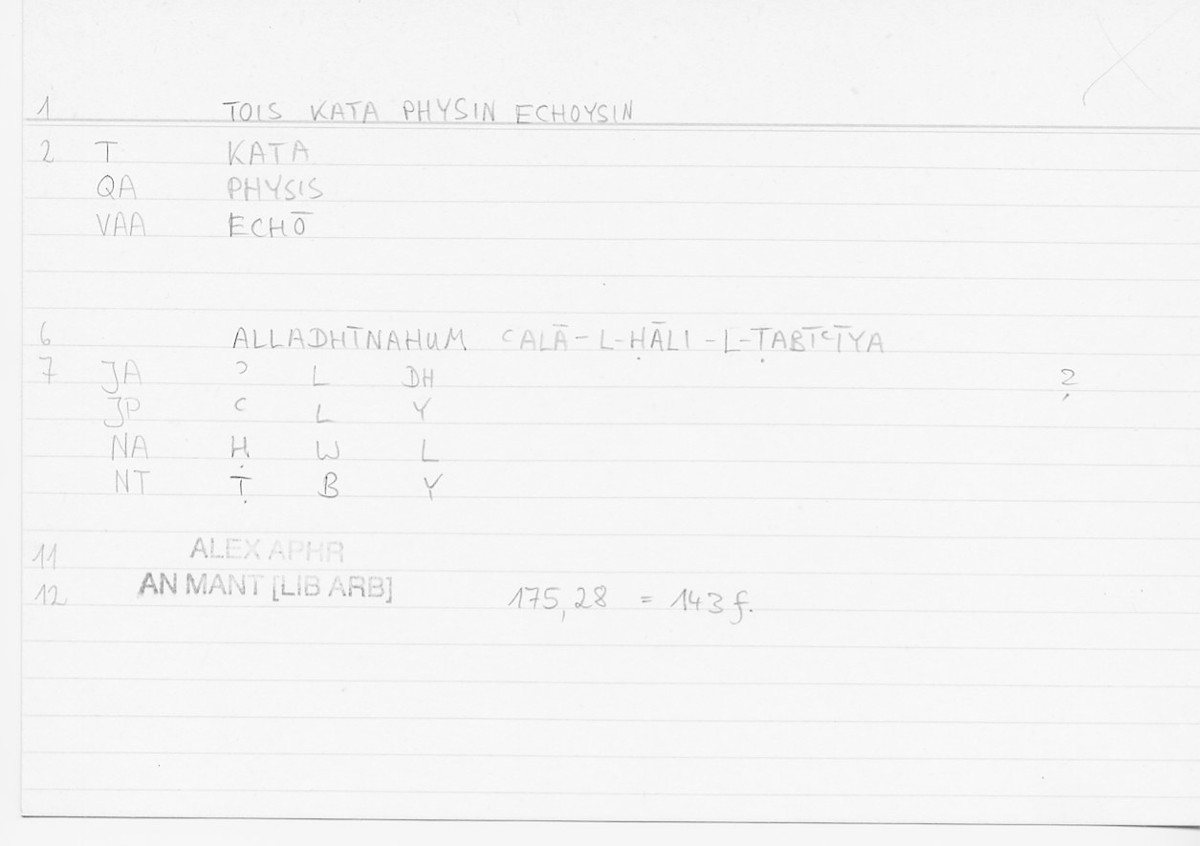 1 TOIS KATA PHYSIN ECHOYSIN
2 T KATA
QA PHYSIS
VAA ECHŌ
6 ALLADHĪNAHUM ʿALĀ-L-ḤĀLI-L-ṬABĪʿĪYA
7 JA ʾ L DH 2
JP ʿ L Y
NA Ḥ W L
NT Ṭ B Y
11 ALEX APHR
12 AN MANT [LIB ARB] 175,28 = 143 f.